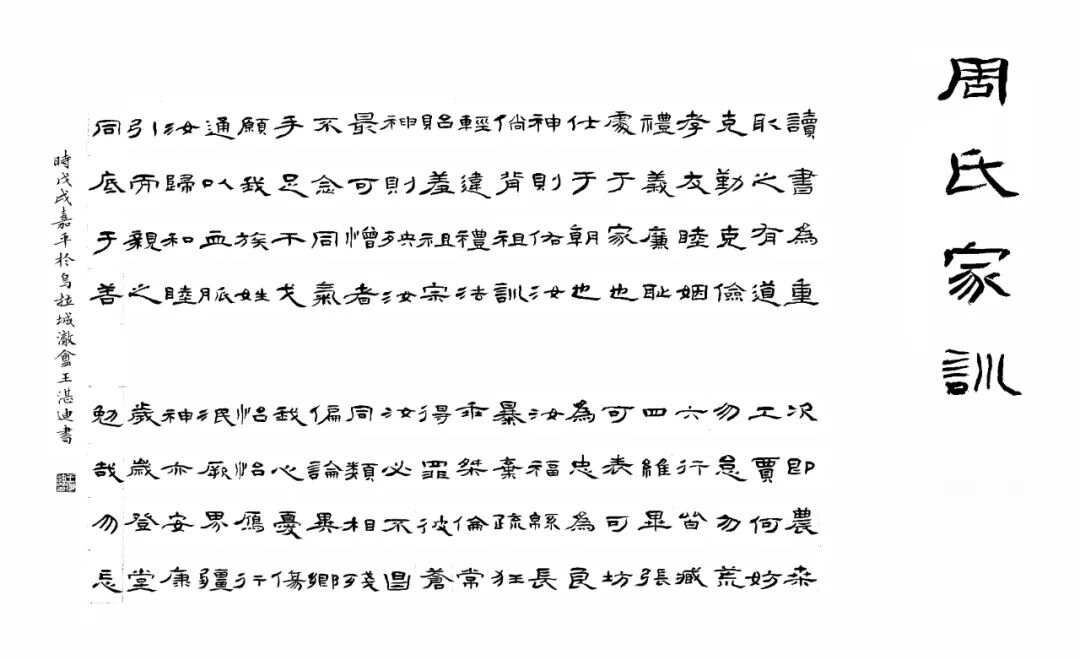 周氏家訓
讀書為重 次即農桑
取之有道 工賈何妨
克勤克儉 勿怠勿荒
孝友睦姻 六行皆臧
禮義廉恥 四維畢張
處于家也 可表可坊
仕于朝也 為忠為良
神則佑汝 汝福緜長
倘背祖訓 暴棄疏狂
輕違禮法 乖桀倫常
貽羞祖宗 得罪彼蒼
神則殃汝 汝必不昌
最可憎者 同類相殘
不念同氣 偏論異鄉
手足不戈 我心憂傷
願我族姓 怡怡鴈行
通以血脈 泯厥界疆
汝歸和睦 神亦安康
引而親之 歲歲登堂
同底于善 勉哉勿忘
時戊戌嘉平於烏拉城澈盦王湛迪書